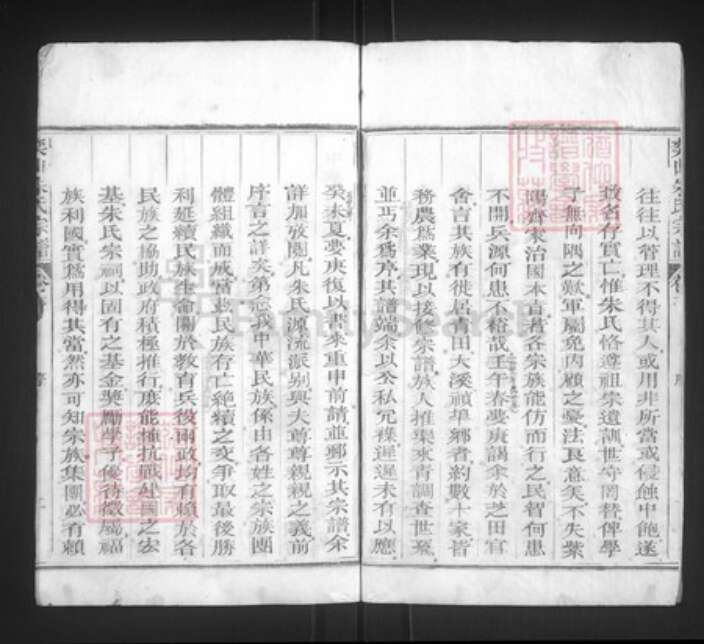 往往以管理不得其人或用非所當或侵蝕中飽遂
致名存實亡惟朱氏恪遵祖宗遺訓世守罔替俾學
子無向隅之歎軍屬免內顧之憂法良意美不失紫
陽齊家治國本旨若各宗族能仿而行之民智何患
不開兵源何患不裕哉壬午春夢庚謁余於芝田官
舍言其族有徙居青田大溪禎埠鄉者約數十家皆
務農為業現以接修宗譜族人推渠來青調查世系
並丐余為序其譜端余以公私冗襍遲遲未有以應
癸未夏夢庚復以書來重申前請並郵示其宗譜余
詳加攷閱凡朱氏源流派別與夫尊尊親親之義前
序言之詳矣第念我中華民族係由各姓之宗族團
體組織而成當此民族存亡絕續之交爭取最後勝
利延續民族生命關於教育兵役兩政均有賴於各
民族之協助政府積極推行庶能極抗戰建國之宏
基朱氏宗祠以固有之基金獎勵學子優待徵屬福
族利國實為用得其當然亦可知宗族集團必有賴
FamilySearch